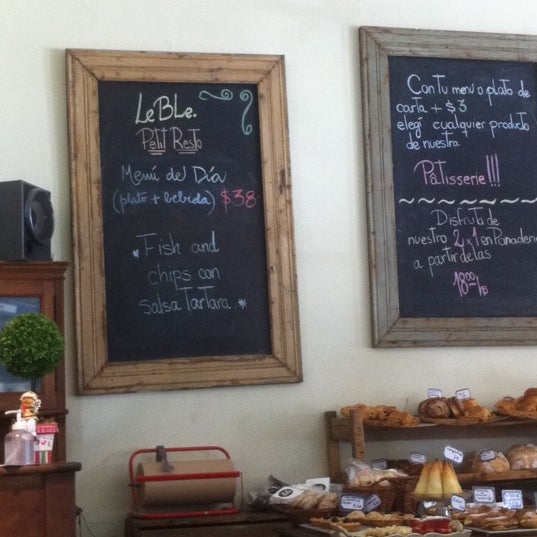 LeBLe.
Petit Resto
Menú del Día
(plato + bebida) $38
*Fish and
chips con
salsa TarTara.*
Con Tu menu o plato de
carta + $3
elegí cualquier producto
de nuestra
Pâtisserie!!!
Disfruta de
nuestro 2x1 en Panadería
a partir de las
18:00 hs